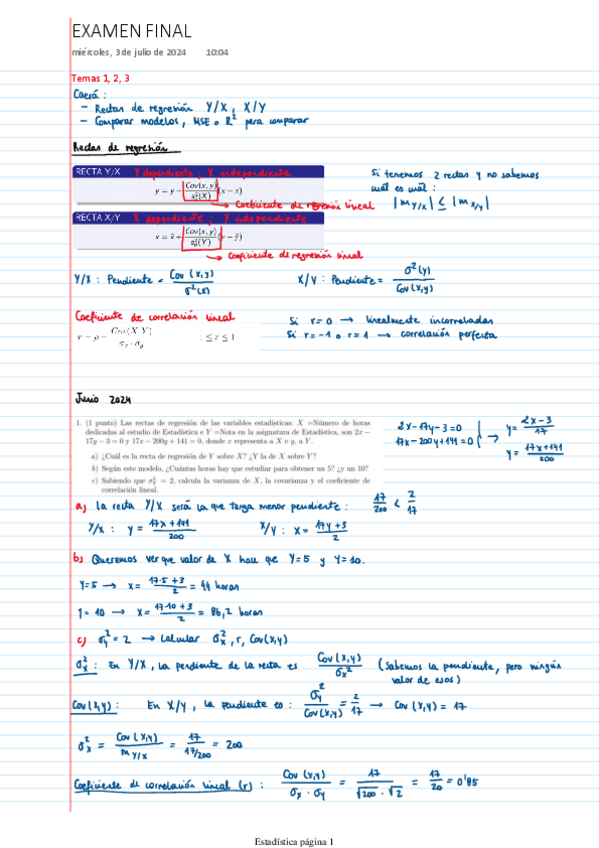 EXAMEN FINAL
miércoles, 3 de julio de 2024 10:04
Temas 1, 2, 3
Caerá :
- Rectas de regresión Y/X, X/Y
- Comparar modelos, MSE o R² para comparar
Rectas de regresión
RECTA Y/X Y dependiente ; X independiente
y = ȳ + Cov(x, y)/s²(X) (x − x̄)
→ Coeficiente de regresión lineal
RECTA X/Y X dependiente ; Y independiente
x = x̄ + Cov(x, y)/s²(Y) (y − ȳ)
→ Coeficiente de regresión lineal
Si tenemos 2 rectas y no sabemos
cuál es cuál :
|m Y/X| ≤ |m X/Y|
Y/X : Pendiente = Cov (x,y)/σ²(x) X/Y : Pendiente = σ²(y)/Cov(x,y)
Coeficiente de correlación lineal
r = ρ = Cov(X,Y)/σx · σy ; ≤ r ≤ 1
Si r = 0 → linealmente incorreladas
Si r = -1 o r = 1 → correlación perfecta
Junio 2024
1. (1 punto) Las rectas de regresión de las variables estadísticas: X =Número de horas
dedicadas al estudio de Estadística e Y =Nota en la asignatura de Estadística, son 2x −
17y − 3 = 0 y 17x − 200y + 141 = 0, donde x representa a X e y, a Y.
a) ¿Cuál es la recta de regresión de Y sobre X? ¿Y la de X sobre Y?
b) Según este modelo, ¿Cuántas horas hay que estudiar para obtener un 5? ¿y un 10?
c) Sabiendo que σ²Y = 2, calcula la varianza de X, la covarianza y el coeficiente de
correlación lineal.
2x - 17y - 3 = 0
17x - 200y + 141 = 0
→ y = 2x - 3/17
y = 17x + 141/200
a) La recta Y/X será la que tenga menor pendiente : 17/200 < 2/17
Y/X : y = 17x + 141/200 X/Y : x = 17y + 3/2
b) Queremos ver que valor de X hace que Y=5 y Y=10.
Y=5 → x = 17·5 + 3/2 = 44 horas
Y = 10 → x = 17·10 + 3/2 = 86,2 horas
c) σy² = 2 → calcular σx², r, Cov(x,y)
σx² : En Y/X, la pendiente de la recta es Cov(x,y)/σx² (Sabemos la pendiente, pero ningún
valor de esos)
Cov(x,y) : En X/Y, la pendiente es : σy²/Cov(x,y) = 2/17 → Cov (x,y) = 17
σx² = Cov (x,y)/m Y/X = 17/17/200 = 200
Coeficiente de correlación lineal (r) : Cov (x,y)/σx · σy = 17/√200 · √2 = 17/20 = 0'85
Estadística página 1